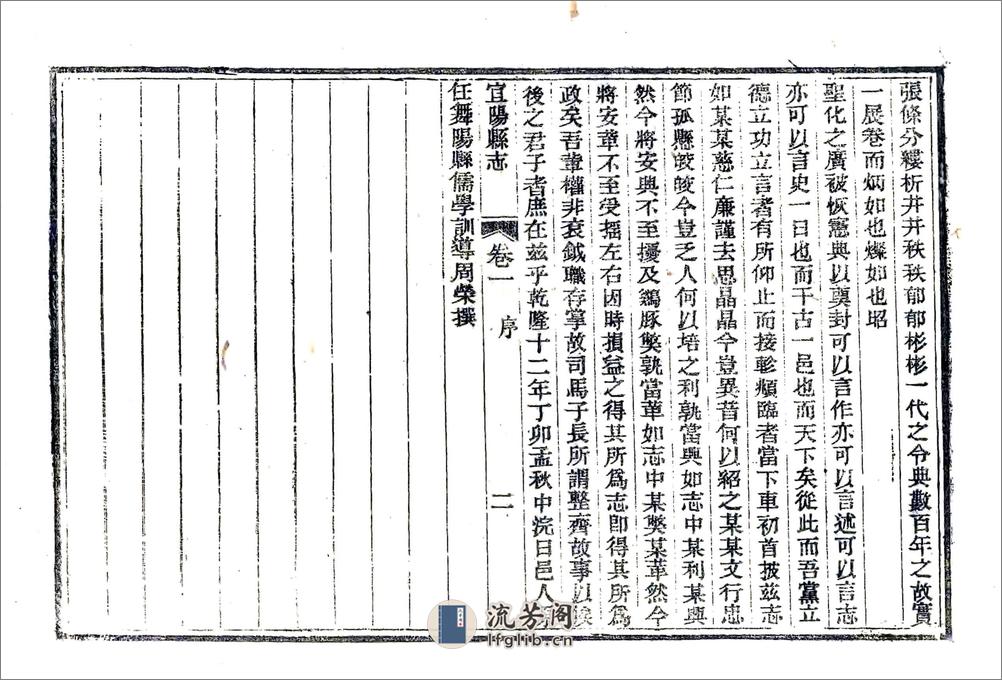 張條分縷析井井秩秩郁郁彬彬一代之令典數百年之故實
一展卷而炳如也燦如也昭
聖化之廣被恢憲典以奠封可以言作亦可以言述可以言志
亦可以言史一日也而千古一邑也而天下矣從此而吾黨立
德立功立言者有所仰止而接軫頫臨者當下車初首披茲志
如某某慈仁廉謹去思晶晶今豈異昔何以紹之某某文行忠
節孤懸皎皎今豈乏人何以培之利孰當興如志中某利某興
然今將安興不至擾及鷄豚獘孰當革如志中某獘某革然今
將安革不至受搖左右因時損益之得其所爲志卽得其所爲
政矣吾輩權非袞鉞職存掌故司馬子長所謂整齊故事以俟
後之君子者庶在茲乎乾隆十二年丁卯孟秋中浣日邑人
宜陽縣志
卷一
序
二
任舞陽縣儒學訓導周榮撰
流芳阁
lfglib.cn